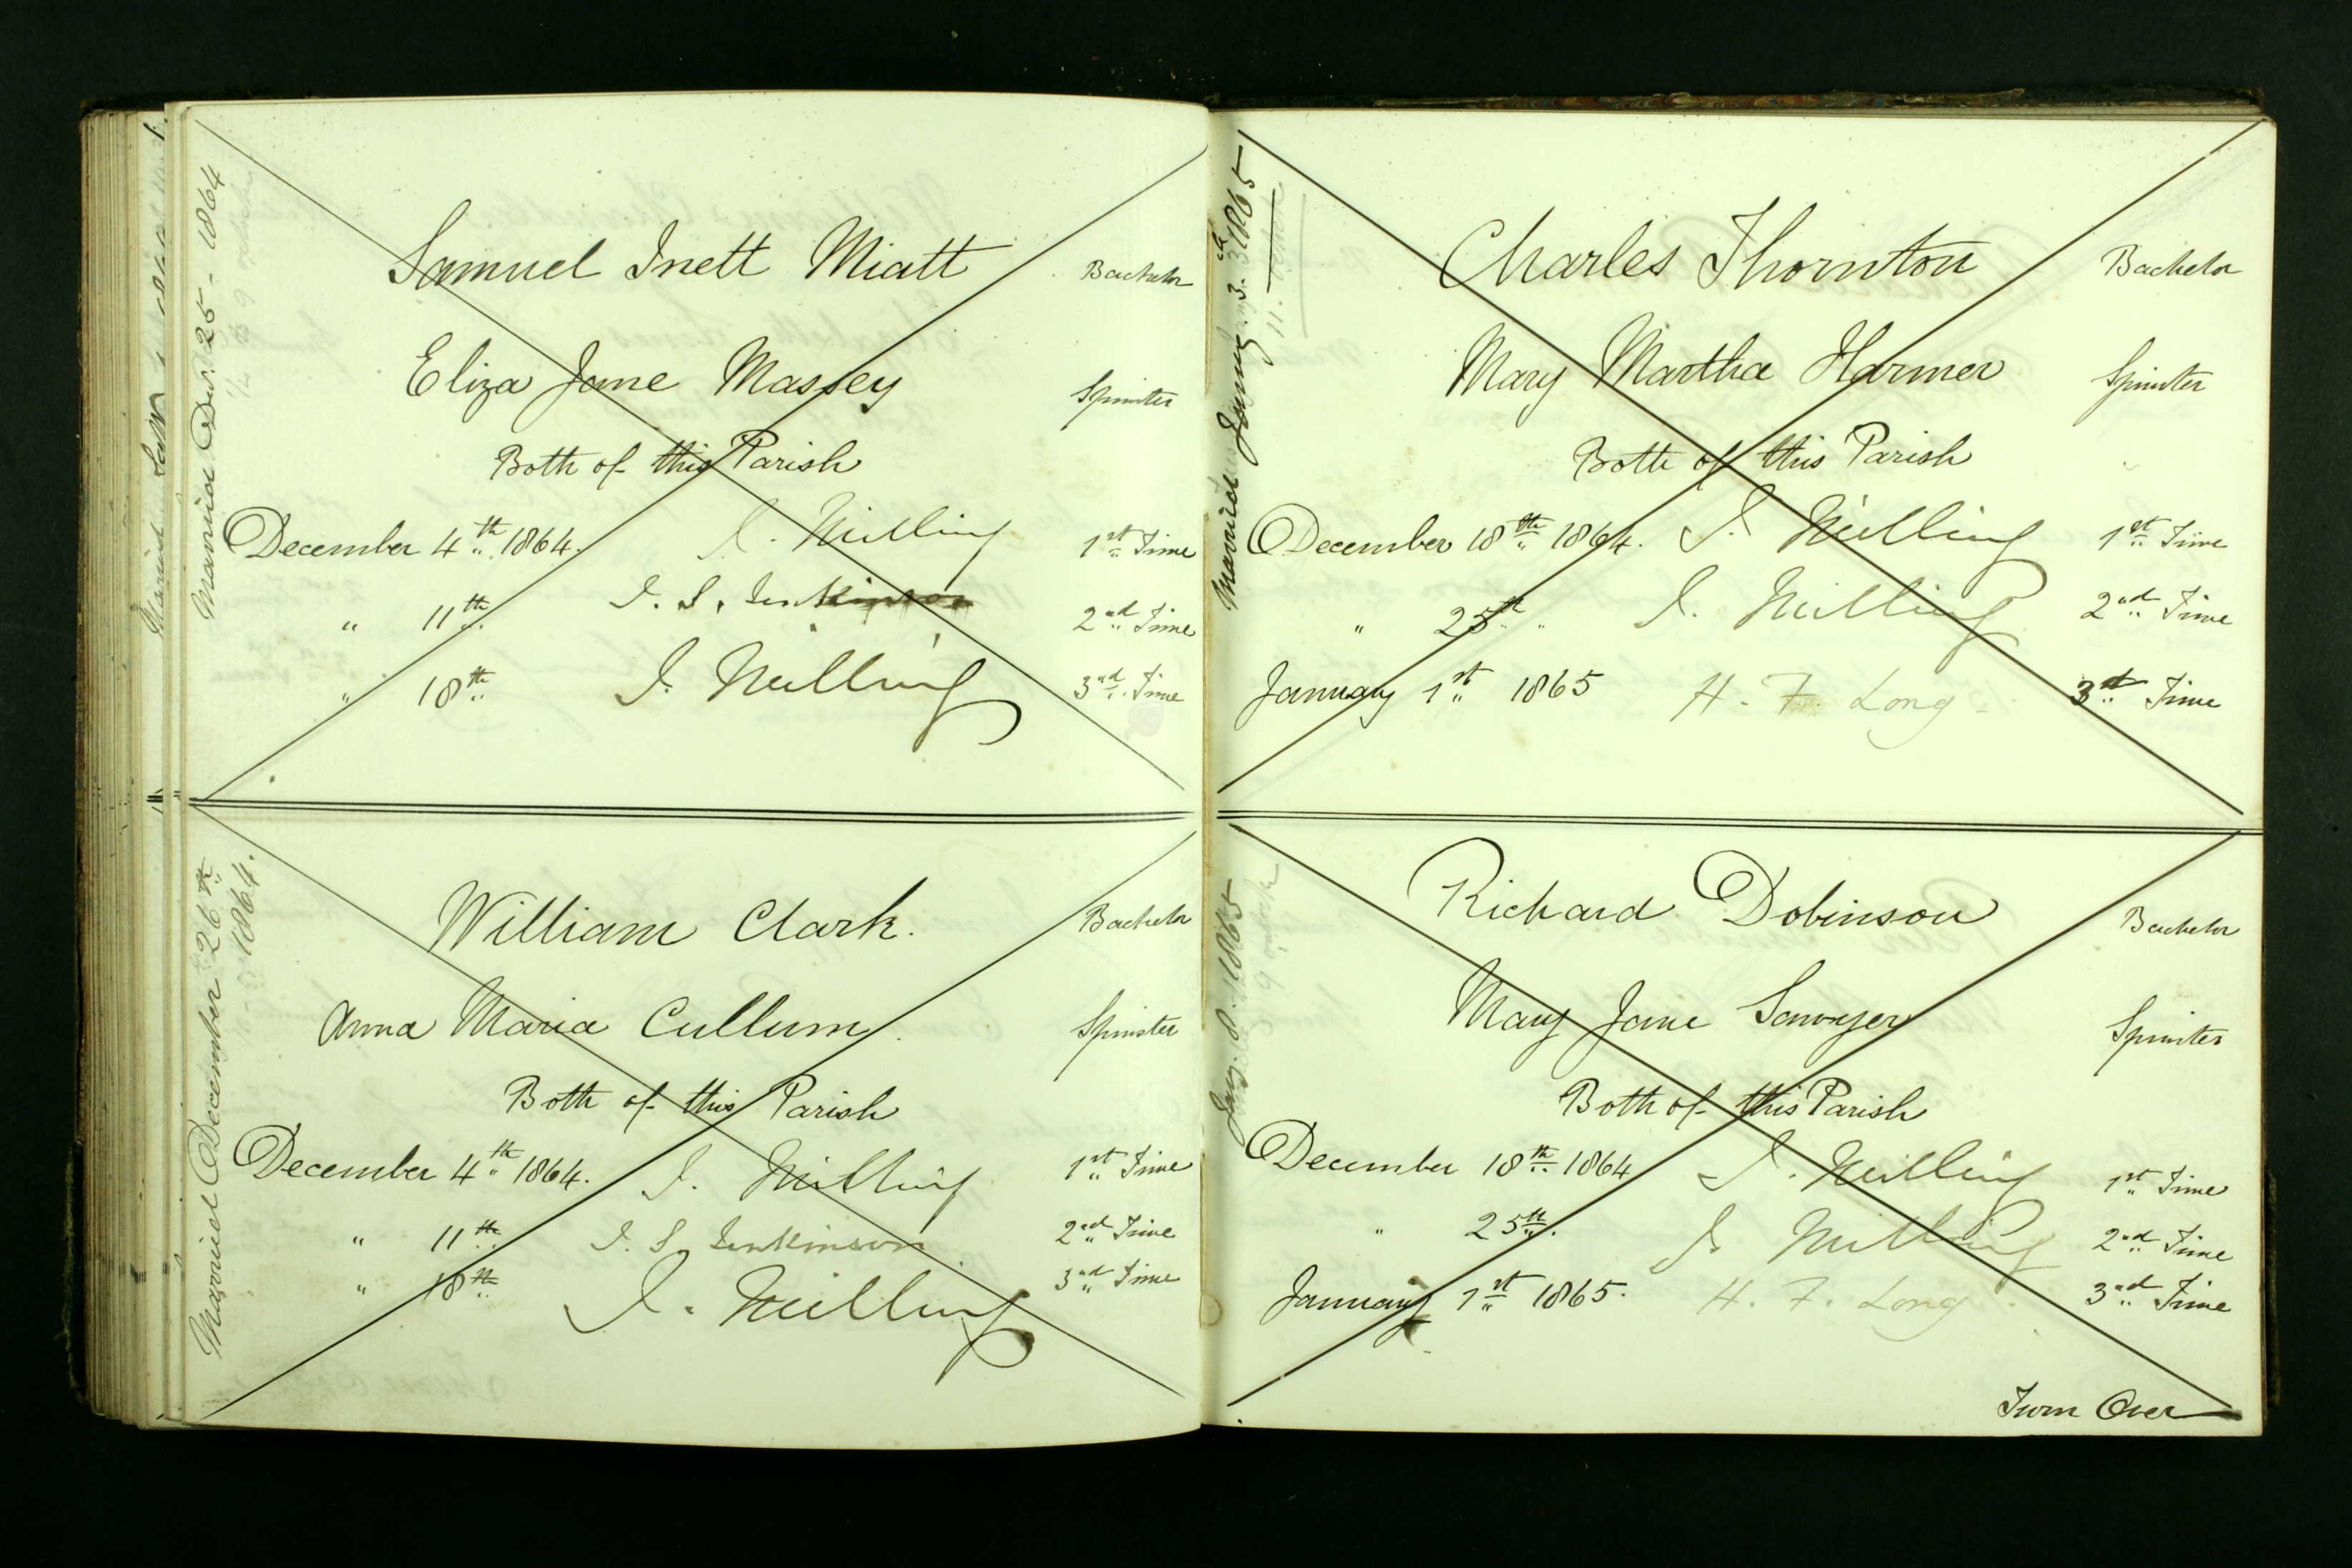 Married Decr. 25 - 1864
Samuel Inett Miatt Bachelor
Eliza Jane Massey Spinster
Both of this Parish
December 4th 1864. J. Milling 1st Time
" 11th J. S. Jenkinson 2nd Time
" 18th J. Milling 3rd Time
Married December 26th
1864.
William Clark. Bachelor
Anna Maria Cullum. Spinster
Both of this Parish
December 4th 1864. J. Milling 1st Time
" 11th J. S. Jenkinson 2nd Time
" 18th J. Milling 3rd Time
Married January 3rd 1865
Charles Thornton Bachelor
Mary Martha Harmer Spinster
Both of this Parish
December 18th 1864. J. Milling 1st Time
" 25th " J. Milling 2nd Time
January 1st 1865 H. F. Long 3rd Time
Jany. 8. 1865
Richard Dobinson Bachelor
Mary Jane Sawyer Spinster
Both of this Parish
December 18th 1864 J. Milling 1st Time
" 25th. J. Milling 2nd Time
January 1st 1865. H. F. Long 3rd Time
Turn Over